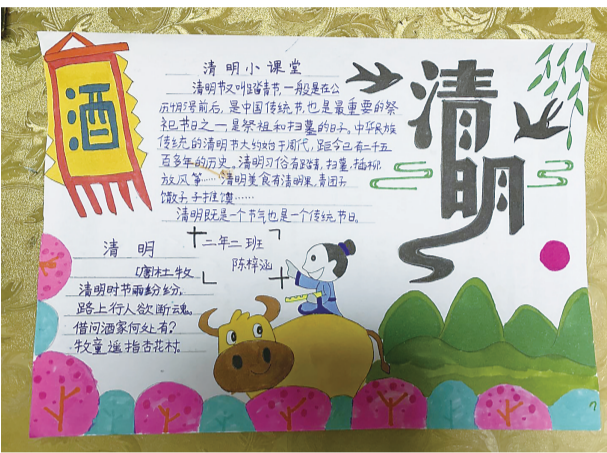 酒
清明小课堂
清明节又叫踏青节,一般是在公
历4月5号前后,是中国传统节,也是最重要的祭
祀节日之一,是祭祖和扫墓的日子。中华民族
传统的清明节大约始于周代,距今已有二千五
百多年的历史。清明习俗有踏青,扫墓,插柳,
放风筝……清明美食有清明果,青团子
馓子,子推馍……
清明既是一个节气也是一个传统节日。
清明
清明
唐杜牧
清明时节雨纷纷,
路上行人欲断魂。
借问酒家何处有?
牧童遥指杏花村。
二年二班
陈梓涵